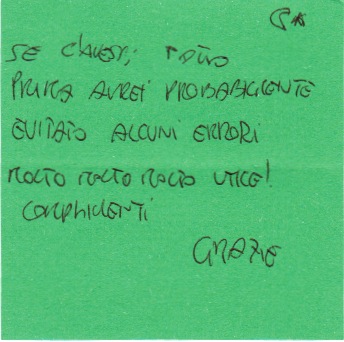 SE
PRIMA AVREI PROBABILMENTE
EVITATO ALCUNI ERRORI
MOLTO MOLTO MOLTO UTILE!
COMPLIMENTI
GRAZIE